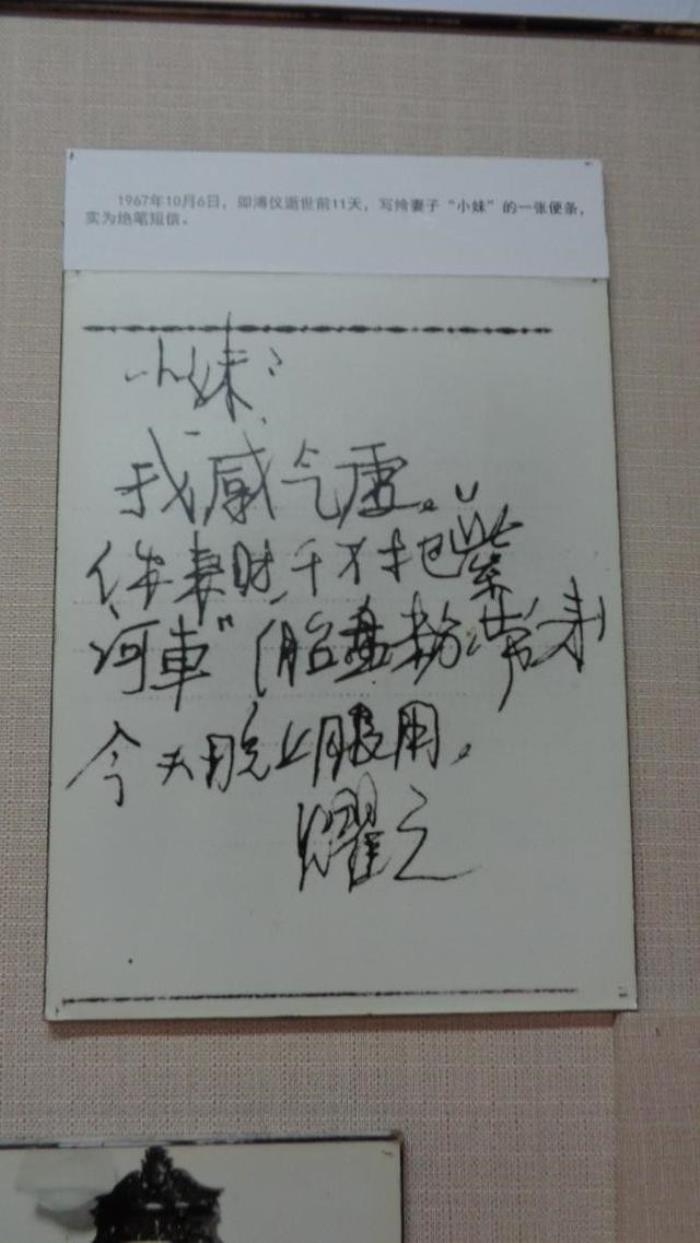 1967年10月6日，即溥仪逝世前11天，写给妻子“小妹”的一张便条，
实为绝笔短信。
小妹：
我感气虚。
时，千万把“紫
河车”（胎盘粉）带来
今天晚上服用。
耀之